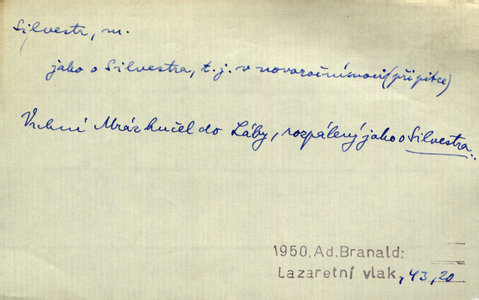 Silvestr, m.
jako o Silvestra, t.j. v novoroční noci (při pitce)
Vrchní Mráz hučel do Láby, rozpálený jako o Silvestra..
1950, Ad. Branald:
Lazaretní vlak, 43, 20